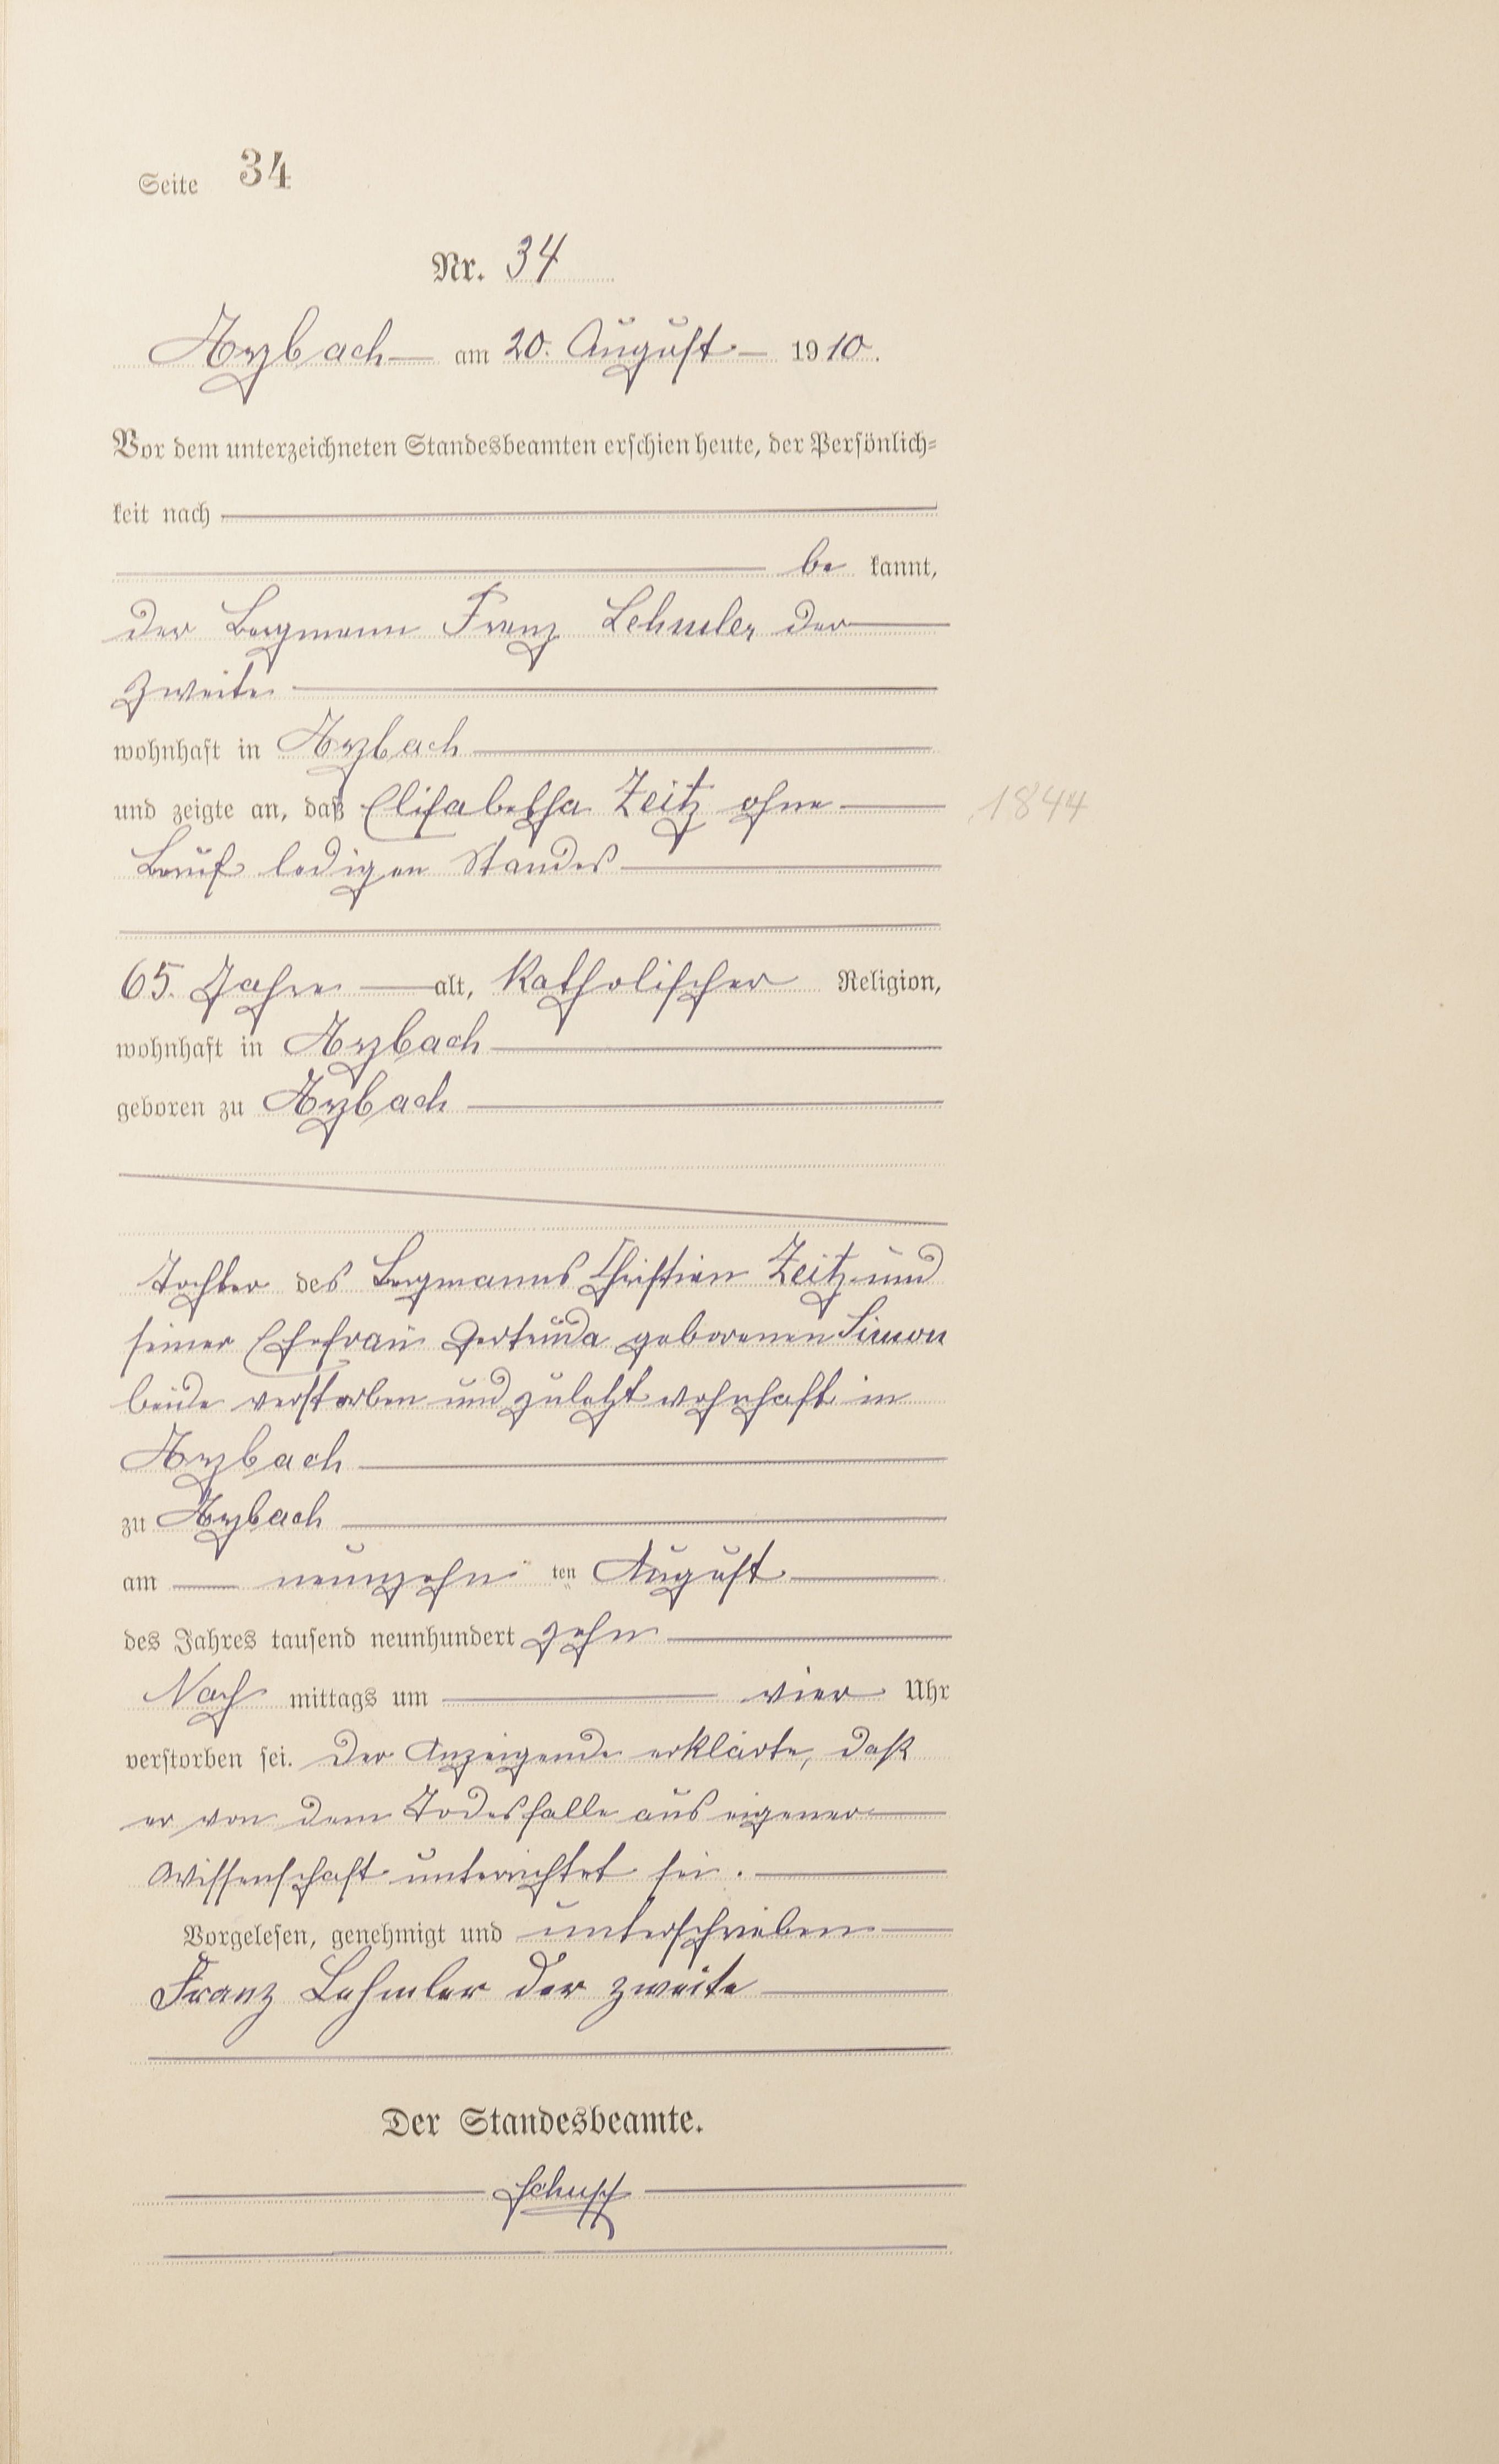 Seite 34
Nr. 34
Arzbach am 20. August 1910.
Vor dem unterzeichneten Standesbeamten erschien heute, der Persönlich-
keit nach
be kannt,
der Bergmann Franz Lehmler der
Zweite
wohnhaft in Arzbach
und zeigte an, daß Elisabetha Zeitz ohne
1844
Beruf ledigen Standes
65 Jahre alt, katholischer Religion,
wohnhaft in Arzbach
geboren zu Arzbach
Tochter des Bergmanns Christian Zeitz und
seiner Ehefrau Gertruda geborenen Simon
beide verstorben und zuletzt wohnhaft in
Arzbach
zu Arzbach
am neunzehn ten August
des Jahres tausend neunhundert zehn
Nach mittags um vier Uhr
verstorben sei. Der Anzeigende erklärte, daß
er von dem Todesfalle aus eigener
Wissenschaft unterrichtet sei.
Vorgelesen, genehmigt und unterschrieben
Franz Lehmler der zweite
Der Standesbeamte.